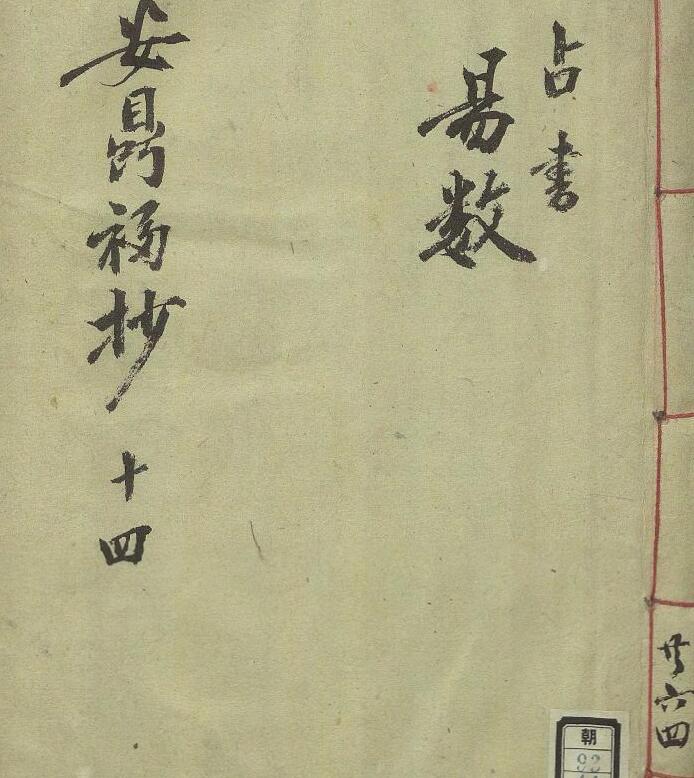 占書
易数
安福抄 十四
共六四
朝
92